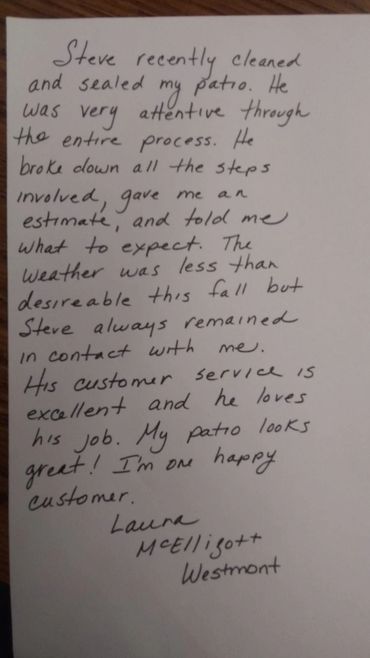 Steve recently cleaned
and sealed my patio. He
was very attentive through
the entire process. He
broke down all the steps
involved, gave me an
estimate, and told me
what to expect. The
weather was less than
desireable this fall but
Steve always remained
in contact with me.
His customer service is
excellent and he loves
his job. My patio looks
great! I'm one happy
customer.
Laura
McElligott
Westmont